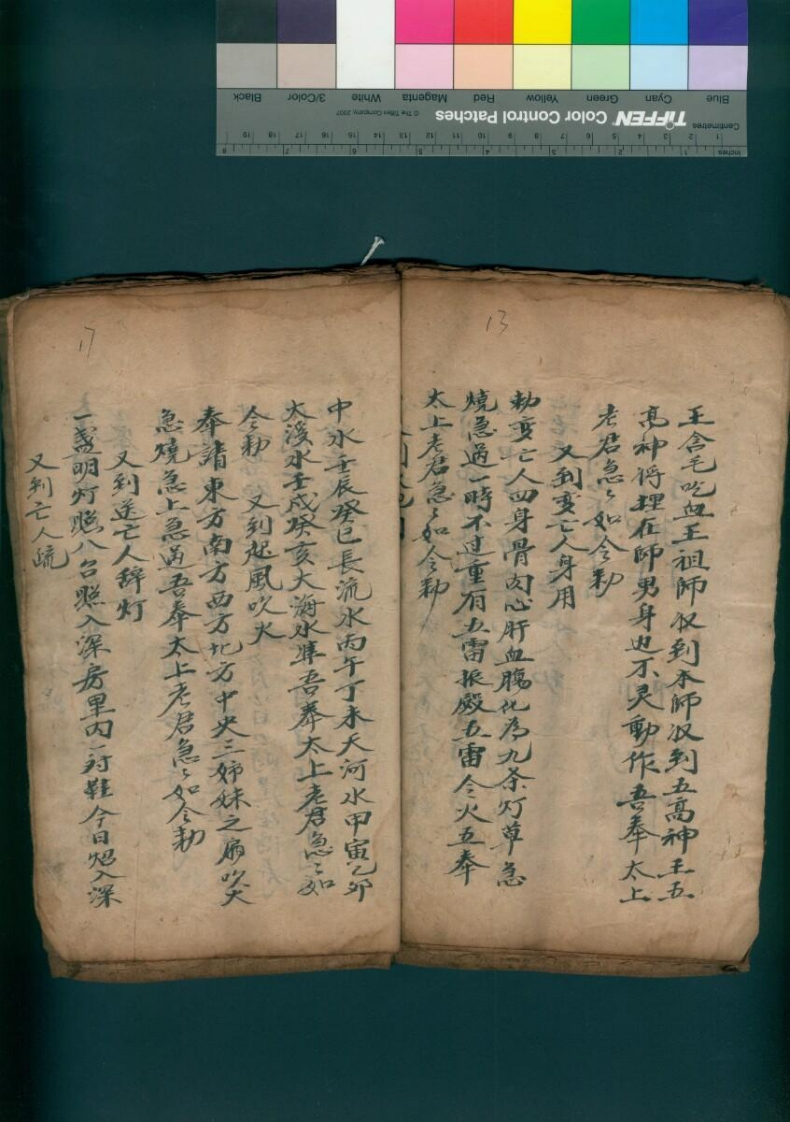 Blue Cyan Green Yellow Red Magenta White 3/Color Black
TIFFEN Color Control Patches © The Tiffen Company, 2007
Centimetres
Inches
13
王含毛吃血王祖師収到本師収到五高神王五
高神将裡在師男身也不灵動作吾奉太上
老君急〻如令勅
又到变亡人身用
勅变亡人四身骨肉心肝血腸化為九条灯草急
燒急過一時不过重有五雷振殿五雷令火五奉
太上老君急〻如令勅
17
中水壬辰癸巳長流水丙午丁未天河水甲寅乙卯
大溪水壬戌癸亥大海水準吾奉太上老君急〻如
令勅 又到起風吹火
奉請東方南方西方北方中央三姊妹之扇吹火
急燒急上急過吾奉太上老君急〻如令勅
又到送亡人辞灯
一盞明灯照八台照入深房里内一対鞋今日炤入深
又到亡人疏